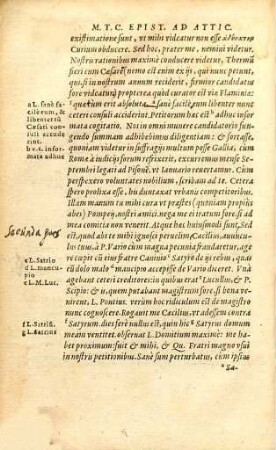 M. T. C. EPIST. AD ATTIC.
existimatione sunt, ut mihi videatur non esse ἀδύνατον
Curium obducere. Sed hoc, præter me, nemini videtur.
Nostris rationibus maximè conducere videtur, Thermũ
fieri cum Cæsare: nemo est enim ex ijs, qui nunc petunt,
qui, si in nostrum annum reciderit, firmior candidatus
fore videatur, propterea quòd curator est via Flaminiæ:
quæ cum erit absoluta, sanè facilè eum libenter nunc
ceteri consuli acciderit. Petitorum hæc est adhuc infor
mata cogitatio. Nos in omni munere candidatorio fun-
gendo summam adhibebimus diligentiam: & fortasse,
quoniam videtur in suffragijs multum posse Gallia, cum
Romæ à iudicijs forum refrixerit, excurremus mense Se-
ptembri legati ad Pisonem, ut Ianuario revertamur. Cum
perspexero voluntates nobilium, scribam ad te. Cetera
spero prolixa esse, his duntaxat urbanis competitoribus.
Illam manum tu mihi cura ut præstes (quoniam propius
abes) Pompeij, nostri amici. nega me ei iratum fore, si ad
mea comitia non venerit. Atque hæc huiusmodi sunt. Sed
est, quod abs te mihi ignosci pervelim. Cæcilius, avuncu-
lus tuus, à P. Vario cum magna pecunia fraudaretur, age-
re cœpit cum eius fratre Caninio Satyro de ijs rebus, quas
eum dolo malo mancipio accepisse de Vario diceret. V-
nà agebant ceteri creditores: in quibus erat Lucullus, &
P. Scipio: & is, quem putabant magistrum fore, si bona ve-
nirent, L. Pontius. verùm hoc ridiculum est de magistro
nunc cognoscere. Rogavit me Cæcilius, ut adessem contra
Satyrum. dies ferè nullus est, quin hic Satyrus domum
meam ventitet. observat L. Domitium maximè: me ha
bet proximum: fuit & mihi, & Qu. Fratri magno usui
in nostris petitionibus. Sanè sum perturbatus, cum ipsius
Sa-
a L. sanè fa-
cilè eum, &
libenter
Cæsari con
suli accude
rint.
b v.c. infor
mata adhuc
secunda pars
c L. Satrio
d L. mancu-
pio
e L. M. Luc.
f L. Satriũ.
g L. Satrius